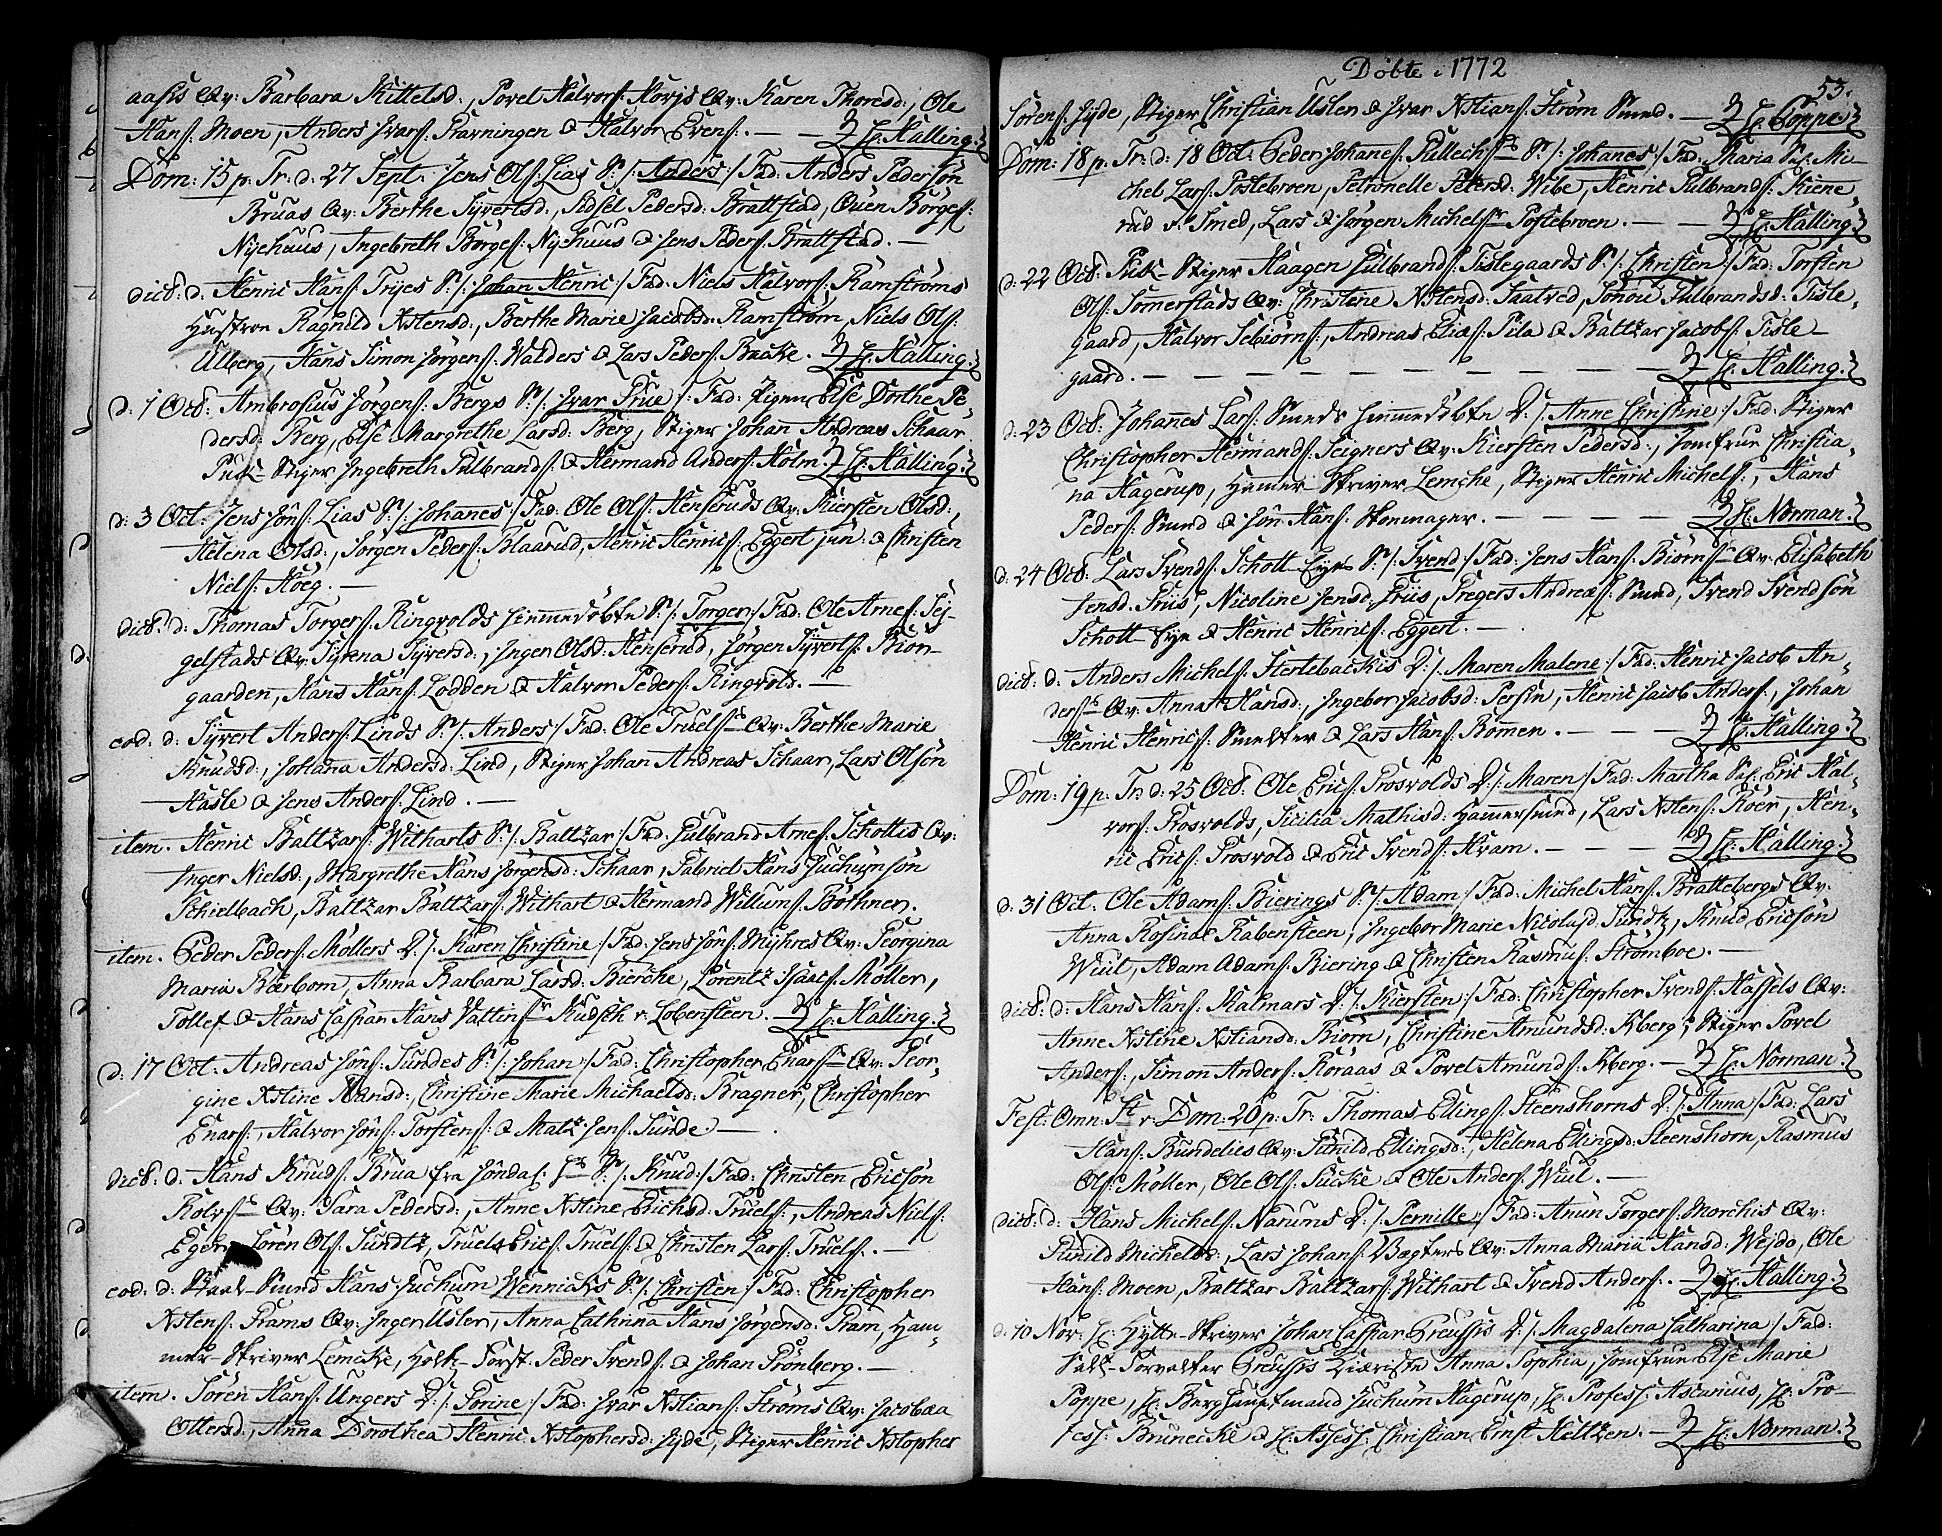 aasis Qv: Barbara Kittelsd:, Povel Halvors: Korsis Qv: Karen Thoresd:, Ole
Hans: Moen, Anders Ivars: Ravningen & Halvor Evens:. — — Hr: Halling.
Dom: 15 p: Tr: d: 27 Sept: Jens Ols: Lias S: /: Anders :/ Fad: Anders Pedersøn
Bruas Qv: Berthe Syvertsd:, Sidsel Pedersd: Brattstad, Ouen Børges:
Nyehuus, Ingebreth Børges: Nyehuus & Jens Peders: Brattstad. —
dict: d: Henric Hans: Tryes S: /: Johan Henric :/ Fad: Niels Halvors: Ramstrøms
Hustroe Ragnild Xstensd:, Berthe Marie Jacobsd: Ramstrøm, Niels Ols:
Ulberg, Hans Simon Jørgens: Walders & Lars Peders: Baake. Hr: Halling.
d: 1 Oct: Ambrosius Jørgens: Bergs S: /: Ivar Prue :/ Fad: Pigen Else Dorthe Pe-
dersd: Berg, Else Margrethe Larsd: Berg, Stiger Johan Andreas Schaar
Puk-Stiger Ingebreth Gulbrands: & Hermand Anders: Holm. Hr: Halling.
d: 3 Oct: Jens Jøns: Lias S: /: Johanes :/ Fad: Ole Ols: Henseruds Qv: Kiersten Olsd:,
Helena Olsd:, Jørgen Peders: Blaarud, Henric Henrics: Eggert jun: & Christen
Niels: Høeg. —
dict: d: Thomas Torgers: Ringvolds hiemmedøbte S: /: Torger :/ Fad: Ole Arnes: Tej-
gelstads Qv: Syrena Syversd:, Inger Olsd: Henserud, Jørgen Syverts: Biøn-
gaarden, Hans Hans: Lodden & Halvor Peders: Ringvold. —
eod: d: Syvert Anders: Linds S: /: Anders :/ Fad: Ole Truels: Qv: Berthe Marie
Knudsd:, Johanna Andersd: Lind, Stiger Johan Andreas Schaar, Lars Olsøn
Hasle & Jens Anders: Lind. —
item. Henric Baltzars: Witharts S: /: Baltzar :/ Fad: Gulbrand Arnes: Schottis Qv:
Inger Nielsd:, Margrethe Hans Jørgensd: Schaar, Gabriel Hans Juchumsøn
Schielbach, Baltzar Baltzars: Withart & Hermand Willums: Bøthner.
item. Peder Peders: Møllers D: /: Karen Christine :/ Fad: Jens Jøns: Myhres Qv: Georgina
Maria Barbom, Anna Barbara Larsd: Bierche, Lorentz Isacs: Møller,
Tollef & Hans Caspar Hans Vattins: Kudsch v: Lobensteen. Hr: Halling.
d: 17 Oct: Andreas Jøns: Sundes S: /: Johan :/ Fad: Christopher Enars: Qv: Geor-
gine Xstine Hansd:, Christine Marie Michaelsd: Bragner, Christopher
Enars:, Halvor Jøns: Torstens: & Matz Jens: Sunde. —
dict: d: Hans Knuds: Brua fra Jøndal: S: /: Knud :/ Fad: Christen Ericsøn
Rolvs: Qv: Sara Pedersd:, Anne Xstine Erichsd: Truels:, Andreas Niels:
Eger, Søren Ols: Sundtz, Truels Erics: Truels: & Christen Lars: Truels:. —
eod: d: Staal-Smed Hans Juchum Wennichs S: /: Christen :/ Fad: Christopher
Xstens: Frams Qv: Inger Usler, Anna Cathrina Hans Jørgensd: Fram, Ham-
mer-Skriver Lemcke, Holtz-Forst: Peder Svends: & Johan Grønberg. —
item. Søren Hans: Ungers D: /: Gorine :/ Fad: Ivar Xstians: Strøms Qv: Jacobæa
Ottersd:, Anna Dorothea Henric Xstophersd: Hyde, Stiger Henric Xstopher
Døbte i 1772
53.
Sørens: Hyde, Stiger Christian Uslen & Ivar Xstians: Strøm Smed. — Hr: Poppes
Dom: 18 p: Tr: d: 18 Oct: Peder Johanes: Gullechs: S: /: Johanes :/ Fad: Maria Sal: Mi-
chel Lars: Postebroen, Petronelle Petersd: Wibe, Henric Gulbrands: Kiene-
rud v: Smed, Lars & Jørgen Michels: Postebroen. — — Hr: Halling.
d: 22 Oct: Puk-Stiger Haagen Gulbrands: Tislegaards S: /: Christen :/ Fad: Torsten
Ols: Somerstads Qv: Christine Xstensd: Saatved, Gonou Gulbrandsd: Tisle-
gaard, Halvor Sebiørns:, Andreas Elias: Pila & Baltzar Jacobs: Tisle-
gaard. — — — — — — — — Hr: Halling.
d: 23 Oct: Johanes Lars: Smeds hiemmedøbte D: /: Anne Christine :/ Fad: Stiger
Christopher Hermands: Seigners Qv: Kiersten Pedersd:, Jomfrue Christia-
na Hagerup, Hamer-Skriver Lemche, Stiger Henric Michels:, Hans
Peders: Smed & Jøn Hans: Skomager. — — — — Hr: Norman.
d: 24 Oct: Lars Svends: Schott-Eye S: /: Svend :/ Fad: Jens Hans: Biørns: Qv: Elisabeth
Jensd: Friis, Nicoline Jensd: Friis, Gregers Andreæs: Smed, Svend Svendsøn
Schott-Eye & Henric Henrics: Eggert. —
dict: d: Anders Michels: Hertebackis D: /: Maren Malene :/ Fad: Henric Jacob An-
ders: Qv: Anna Hansd:, Ingebor Jacobsd: Persin, Henric Jacob Anders:, Johan
Henric Henrics: Smelter & Lars Hans: Komen. — — — Hr: Halling.
Dom: 19 p: Tr: d: 25 Oct: Ole Erics: Grosvolds D: /: Maren :/ Fad: Martha Sal: Eric Hal-
vors: Grosvolds, Sicilia Mathisd: Hamersmed, Lars Xstens: Koer, Hen-
ric Erics: Grosvold & Eric Svends: Kvam. — — — Hr: Halling.
d: 31 Oct: Ole Adams: Bierings S: /: Adam :/ Fad: Michel Hans: Brattebergs Qv:
Anna Rosina Rabensteen, Ingebor Marie Nicolaisd: Sundtz, Knud Ericsøn
Wiul, Adam Adams: Biering & Christen Rasmus: Stromboe. —
dict: d: Hans Hans: Kalmars D: /: Kiersten :/ Fad: Christopher Svends: Hassels Qv:
Anne Xstine Xstiansd: Biørn, Christine Amundsd: Kberg, Stiger Povel
Anders:, Simon Anders: Roraas & Povel Amunds: Kberg. — Hr: Norman.
Fest: Omn: St: v: Dom: 20 p: Tr: Thomas Ellings: Steenshorns D: /: Anna :/ Fad: Lars
Hans: Bundelies Qv: Gunild Ellingsd:, Helena Ellingsd: Steenshorn, Rasmus
Ols: Møller, Ole Ols: Sucke & Ole Anders: Wiul. —
dict: d: Hans Michels: Narums D: /: Pernille :/ Fad: Anun Torgers: Morchis Qv:
Gunild Michelsd:, Lars Johans: Vegters Qv: Anna Maria Hansd: Wejdo, Ole
Hans: Moen, Baltzar Baltzars: Withart & Svend Anders:. — Hr: Halling.
d: 10 Nov: Hr: Hytte-Skriver Johan Caspar Preussis D: /: Magdalena Catharina :/ Fad:
Falk-Forvalter Preussis Kiæriste Anna Sophia, Jomfrue Else Marie
Poppe, Hr: Berghauptmand Juchum Hagerup, Hr: Profess: Ascanius, Hr: Pro-
fess: Brunecke & Hr: Assess: Christian Ernst Heltzen. — Hr: Norman.